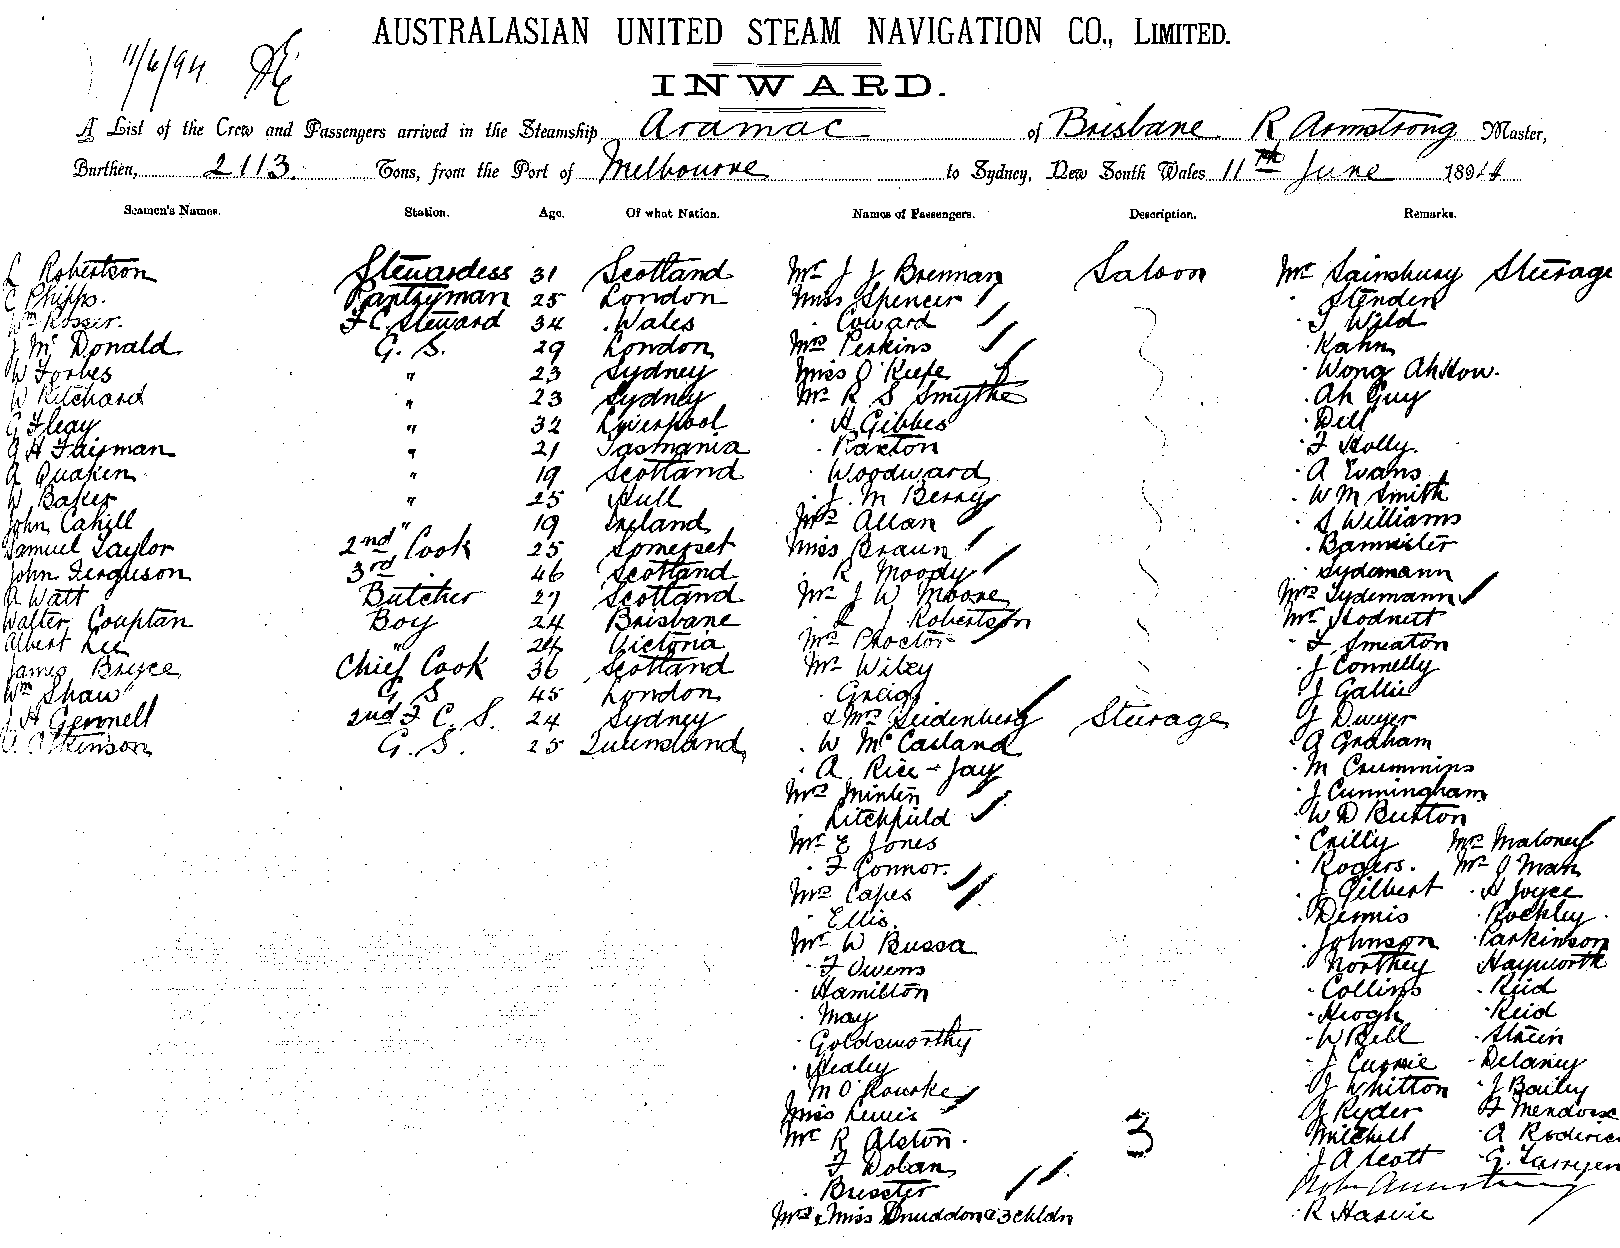 AUSTRALASIAN UNITED STEAM NAVIGATION CO., LIMITED.
11/6/94
INWARD.
A List of the Crew and Passengers arrived in the Steamship Aramac of Brisbane R Armstrong Master,
Burthen, 2113. Tons, from the Port of Melbourne to Sydney, New South Wales 11th June 1894
Seamen's Names. Station. Age. Of what Nation. Names of Passengers. Description. Remarks.
L Robertson Stewardess 31 Scotland Mr J J Brennan Saloon Mr Sainsbury Sturage
C Phipps. Pantryman 25 London Miss Spencer · Stenden
Wm Rosser. F C. Steward 34 Wales · Coward · T Wild
J Mc Donald G. S. 29 London Mrs Perkins · Kahn
W Forbes " 23 Sydney Miss O'Keefe · Wong Ah How.
W Pitchard " 23 Sydney Mr R S Smythe · Ah Guy
G Fleay " 32 Liverpool · H Gibbes · Dell
G H Fairman " 21 Tasmania · Paxton · F Holly.
A Quaken " 19 Scotland · Woodward · A Evans
W Baker " 25 Hull · J. M Berry · W M Smith
John Cahill " 19 Ireland Mrs Allan · S Williams
Samuel Taylor 2nd Cook 25 Somerset Miss Braun · Bannister
John Ferguson 3rd 46 Scotland · R Moody · Sydemann
A Watt Butcher 27 Scotland Mr J W Moore Mrs Sydemann
Walter Couptan Boy 24 Brisbane · J Robertson Mr Hodnett
Albert Lee " 24 Victoria Mrs Proctor · F Smeaton
James Bryce Chief Cook 36 Scotland Mr Wiley · J Connelly
Wm Shaw G S 45 London · Greig · J Gallie
J H Gemmell 2nd F C. S. 24 Sydney · & Mrs Seidenberg Sturage · J Dwyer
Atkinson G. S. 25 Queensland · W Mc Casland · A Graham
· A Rice-Jay · M Crummins
Mrs Minten · J Cunningham
· Litchfield · W D Burton
Mr E Jones · Crilly Mrs Maloney
· F Connor. · Rogers. Mr J Man
Mrs Capes · J Gilbert · H Joyce
· Ellis · Dennis · Rockley
Mr W Bussa · Johnson · Parkinson
· F Owens · Northey Hayworth
· Hamilton · Collins · Reid
· May · Keogh · Reid
· Goldsworthy · W Bell · Stein
· Hedley · J Currie · Delaney
· M O'Rourke · J Whitton · J Baily
Miss Lewis · J Ryder
Mr R Alston. 3 Mitchell
· F Dolan · J A Scott
· Brester Robt Armstrong
Mrs & Miss & 3 chldn · R Harvie